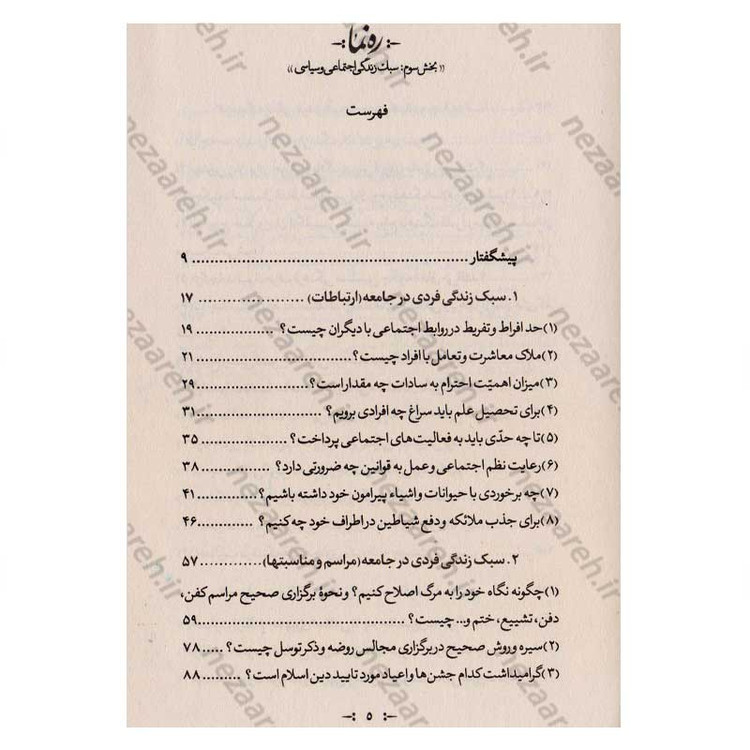 ره‌نما
«بخش سوم: سبک زندگی اجتماعی و سیاسی»
فهرست
پیشگفتار ........................................................ ۹
۱. سبک زندگی فردی در جامعه (ارتباطات) ..................... ۱۷
(۱) حد افراط و تفریط در روابط اجتماعی با دیگران چیست؟ ............... ۱۹
(۲) ملاک معاشرت و تعامل با افراد چیست؟ .............................. ۲۱
(۳) میزان اهمیّت احترام به سادات چه مقدار است؟ ...................... ۲۹
(۴) برای تحصیل علم باید سراغ چه افرادی برویم؟ ......................... ۳۱
(۵) تا چه حدّی باید به فعالیت‌های اجتماعی پرداخت؟ ................. ۳۵
(۶) رعایت نظم اجتماعی و عمل به قوانین چه ضرورتی دارد؟ .............. ۳۸
(۷) چه برخوردی با حیوانات و اشیاء پیرامون خود داشته باشیم؟ ............ ۴۱
(۸) برای جذب ملائکه و دفع شیاطین در اطراف خود چه کنیم؟ ........... ۴۶
۲. سبک زندگی فردی در جامعه (مراسم و مناسبتها) ............. ۵۷
(۱) چگونه نگاه خود را به مرگ اصلاح کنیم؟ و نحوهٔ برگزاری صحیح مراسم کفن،
دفن، تشییع، ختم و... چیست؟ ......................................... ۵۹
(۲) سیره و روش صحیح در برگزاری مجالس روضه و ذکر توسل چیست؟ ..... ۷۸
(۳) گرامیداشت کدام جشن‌ها و اعیاد مورد تایید دین اسلام است؟ ......... ۸۸
۵
nezaareh.ir
nezaareh.ir
nezaareh.ir
nezaareh.ir
nezaareh.ir
nezaareh.ir
nezaareh.ir
nezaareh.ir
nezaareh.ir